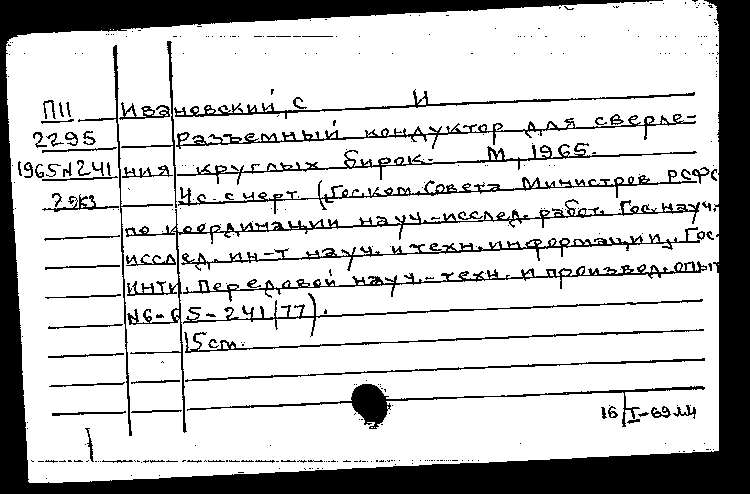 П11 Ивановский, С И
2295 Разъемный кондуктор для сверле-
1965 N241 ния круглых бирок. М, 1965.
2 экз 4с. с черт. (Гос.ком. Совета Министров РСФС
по координации науч.-исслед. работ. Гос. науч.-
исслед. ин-т науч. и техн. информации. Гос-
ИНТИ. Передовой науч.-техн. и производ. опыт
N6-65-241/77).
15 cm.
16/I-69